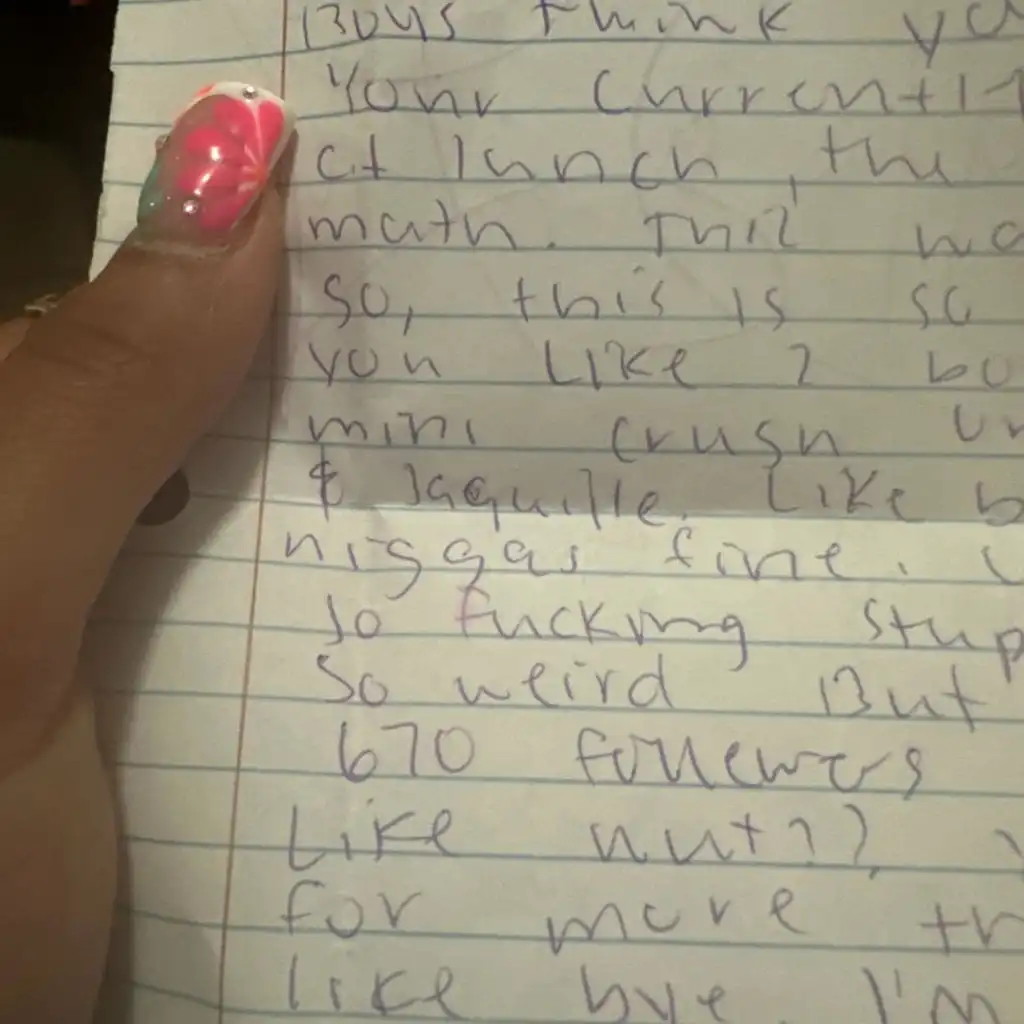 Boys think yo
Your currently
at lunch, the
math. This wa
so, this is so
you like 2 bo
mini crush
& Jaquille. Like b
niggas fine.
so fucking stup
So weird But
670 followers
Like nut??
for more th
like bye. I'm